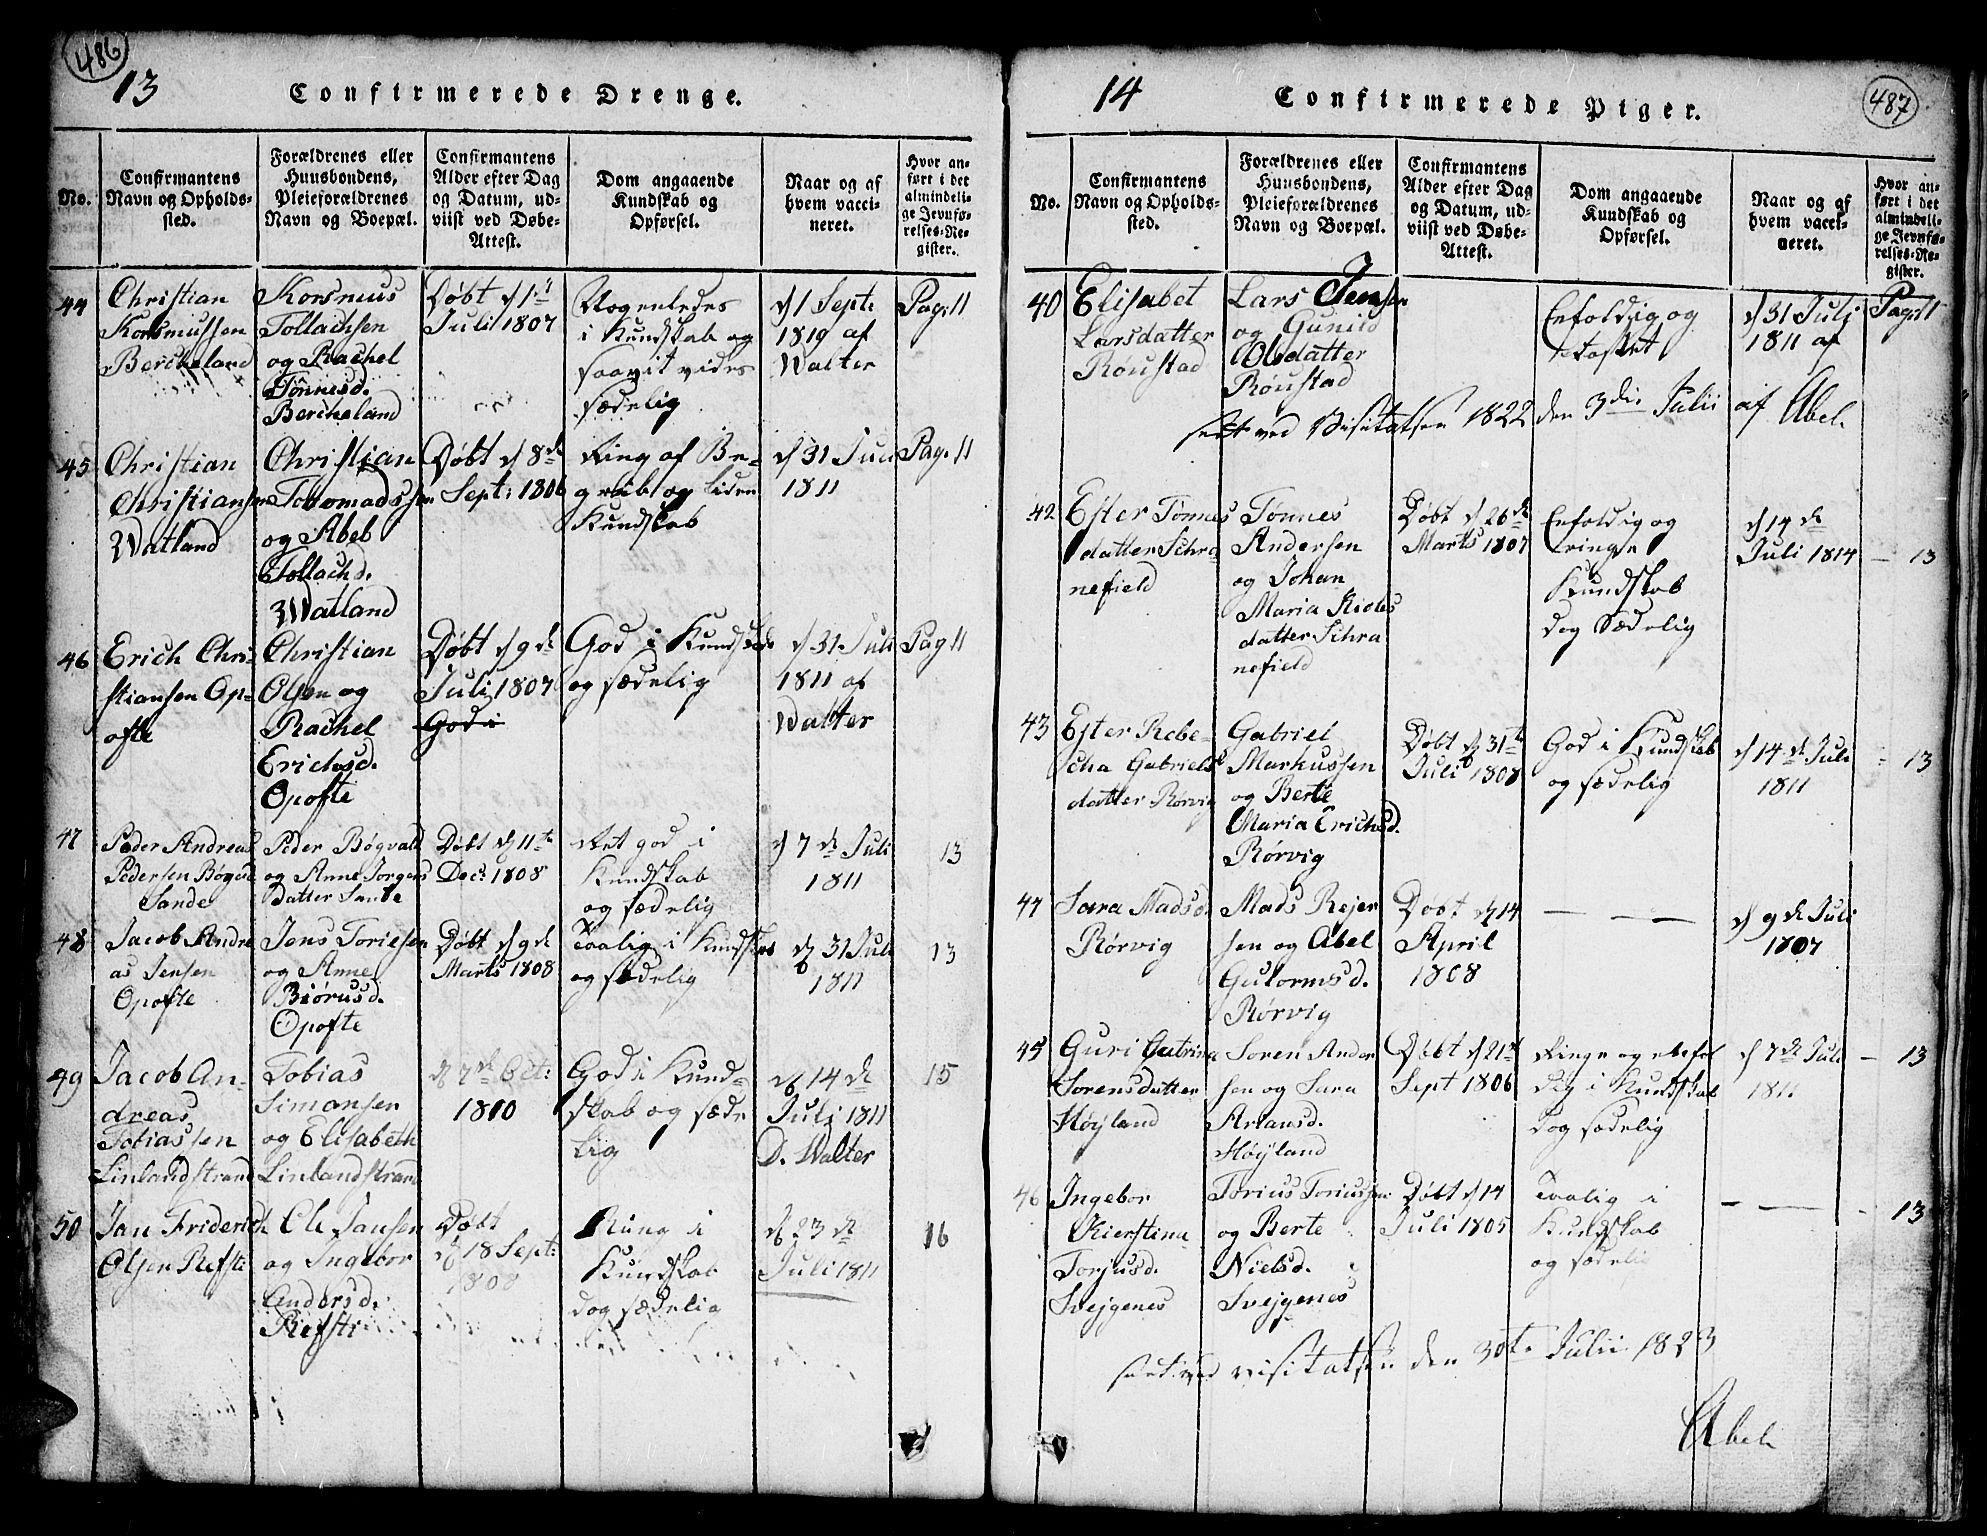 486
13
Confirmerede Drenge.
No.
Confirmantens
Navn og Opholds-
sted.
Forældrenes eller
Huusbondens,
Pleieforældrenes
Navn og Boepæl.
Confirmantens
Alder efter Dag
og Datum, ud-
viist ved Døbe-
Attest.
Dom angaaende
Kundskab og
Opførsel.
Naar og af
hvem vacci-
neret.
Hvor an-
ført i det
almindeli-
ge Jevnfø-
relses-Re-
gister.
44
Christian
Korsmussen
Bercheland
Korsmus
Tollachsen
og Rachel
Tönnesd.
Bercheland
Døbt d 1
Juli 1807
Nogenledes
i Kundskab og
saavit vides
sædelig
d 1 Sept:
1819 af
Walter
Pag: 11
45
Christian
Christiansen
Watland
Christian
Tobomadssen
og Abel
Tollachd.
Watland
Døbt d 8de
Sept: 1806
Ring af Be-
greb og liden
Kundskab
d 31 Juli
1811
Pag. 11
46
Erich Chri-
stiansen Op-
ofte
Christian
Olsen og
Rachel
Erichsd.
Opofte
Døbt d 9de
Juli 1807
God i
God i Kundskab
og sædelig
d 31. Juli
1811 af
Walter
Pag 11
47
Peder Andreas
Pedersen Bøgvd
Sande
Peder Bøgvald
og Anne Jørgens
Datter Sande
Døbt d 11te
Dec: 1808
Ret god i
Kundskab
og sædelig
d 7de Juli
1811
13
48
Jacob Andre
as Jensen
Opofte
Jens Toriesen
og Anne
Biörnsd.
Opofte
Døbt d 9de
Marts 1808
Taalig i Kundskab
og sædelig
d 31 Juli
1811
13
49
Jacob An-
dreas
Tobiassen
Linlandstrand
Tobias
Simonsen
og Elisabeth
Linlandstrand
d 7de Oct:
1810
God i Kund-
skab og sæde
lig
d 14de
Juli 1811
D. Walter
15
50
Jan Friderich
Olsen Refsti
Ole Jansen
og Ingebor
Andersd.
Refsti
Døbt
d 18 Sept:
1808
Rung i
Kundskab
dog sædelig
d 23de
Juli 1811
16
487
14
Confirmerede Piger.
No.
Confirmantens
Navn og Opholds-
sted.
Forældrenes eller
Huusbondens,
Pleieforældrenes
Navn og Boepæl.
Confirmantens
Alder efter Dag
og Datum, ud-
viist ved Døbe-
Attest.
Dom angaaende
Kundskab og
Opførsel.
Naar og af
hvem vacci-
neret.
Hvor an-
ført i det
almindeli-
ge Jevnfø-
relses-Re-
gister.
40
Elisabet
Larsdatter
Röustad
Lars Jensen
og Gunild
Olsdatter
Röustad
Enfoldig og
d 31 Juli
1811 af
Pag: 11
seet ved Visitatsen 1822 den 3die Julii af Abel.
42
Ester Tønnes
datter Schra
nefield
Tønnes
Andersen
og Johan
Maria Nicolas
datter Schra
nefield
Døbt d 26de
Marts 1807
Enfoldig og
ringe
Kundskab
dog Sædelig
d 14de
Juli 1814
— 13
43
Ester Rebe-
cha Gabriels
datter Rörvig
Gabriel
Markussen
og Berte
Maria Erichsd.
Rörvig
Døbt d 31te
Juli 1808
God i Kundskab
og sædelig
d 14de Juli
1811
- 13
44
Sara Madsd.
Rørvig
Mads Rejer
sen og Abel
Gutormsd.
Rørvig
Døbt d 14
April
1808
— —
d 9de Juli
1807
45
Guri Catrina
Sorensdatter
Høyland
Soren Ander
sen og Sara
Arlansd.
Høyland
Døbt d 21de
Sept 1806
Ringe og enfol
dig i Kundskab
dog sædelig
d 7de Juli
1811
— 13
46
Ingebor
Kierstina
Torjusd.
Svejgenes
Torius Toriussen
og Berte
Nielsd.
Svejgenes
Døbt d 14
Juli 1805
Taalig i
Kundskab
og sædelig
— —
- 13
seet ved visitatsen den 30te Julii 1823
Abel